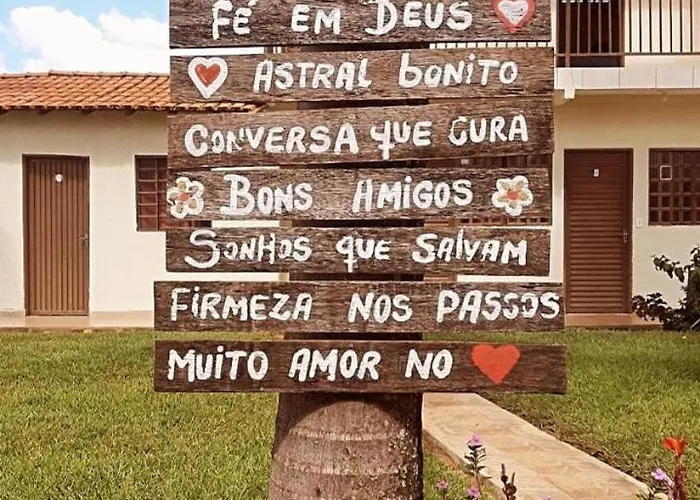 FÉ EM DEUS
ASTRAL BONITO
CONVERSA QUE CURA
BONS AMIGOS
SONHOS QUE SALVAM
FIRMEZA NOS PASSOS
MUITO AMOR NO